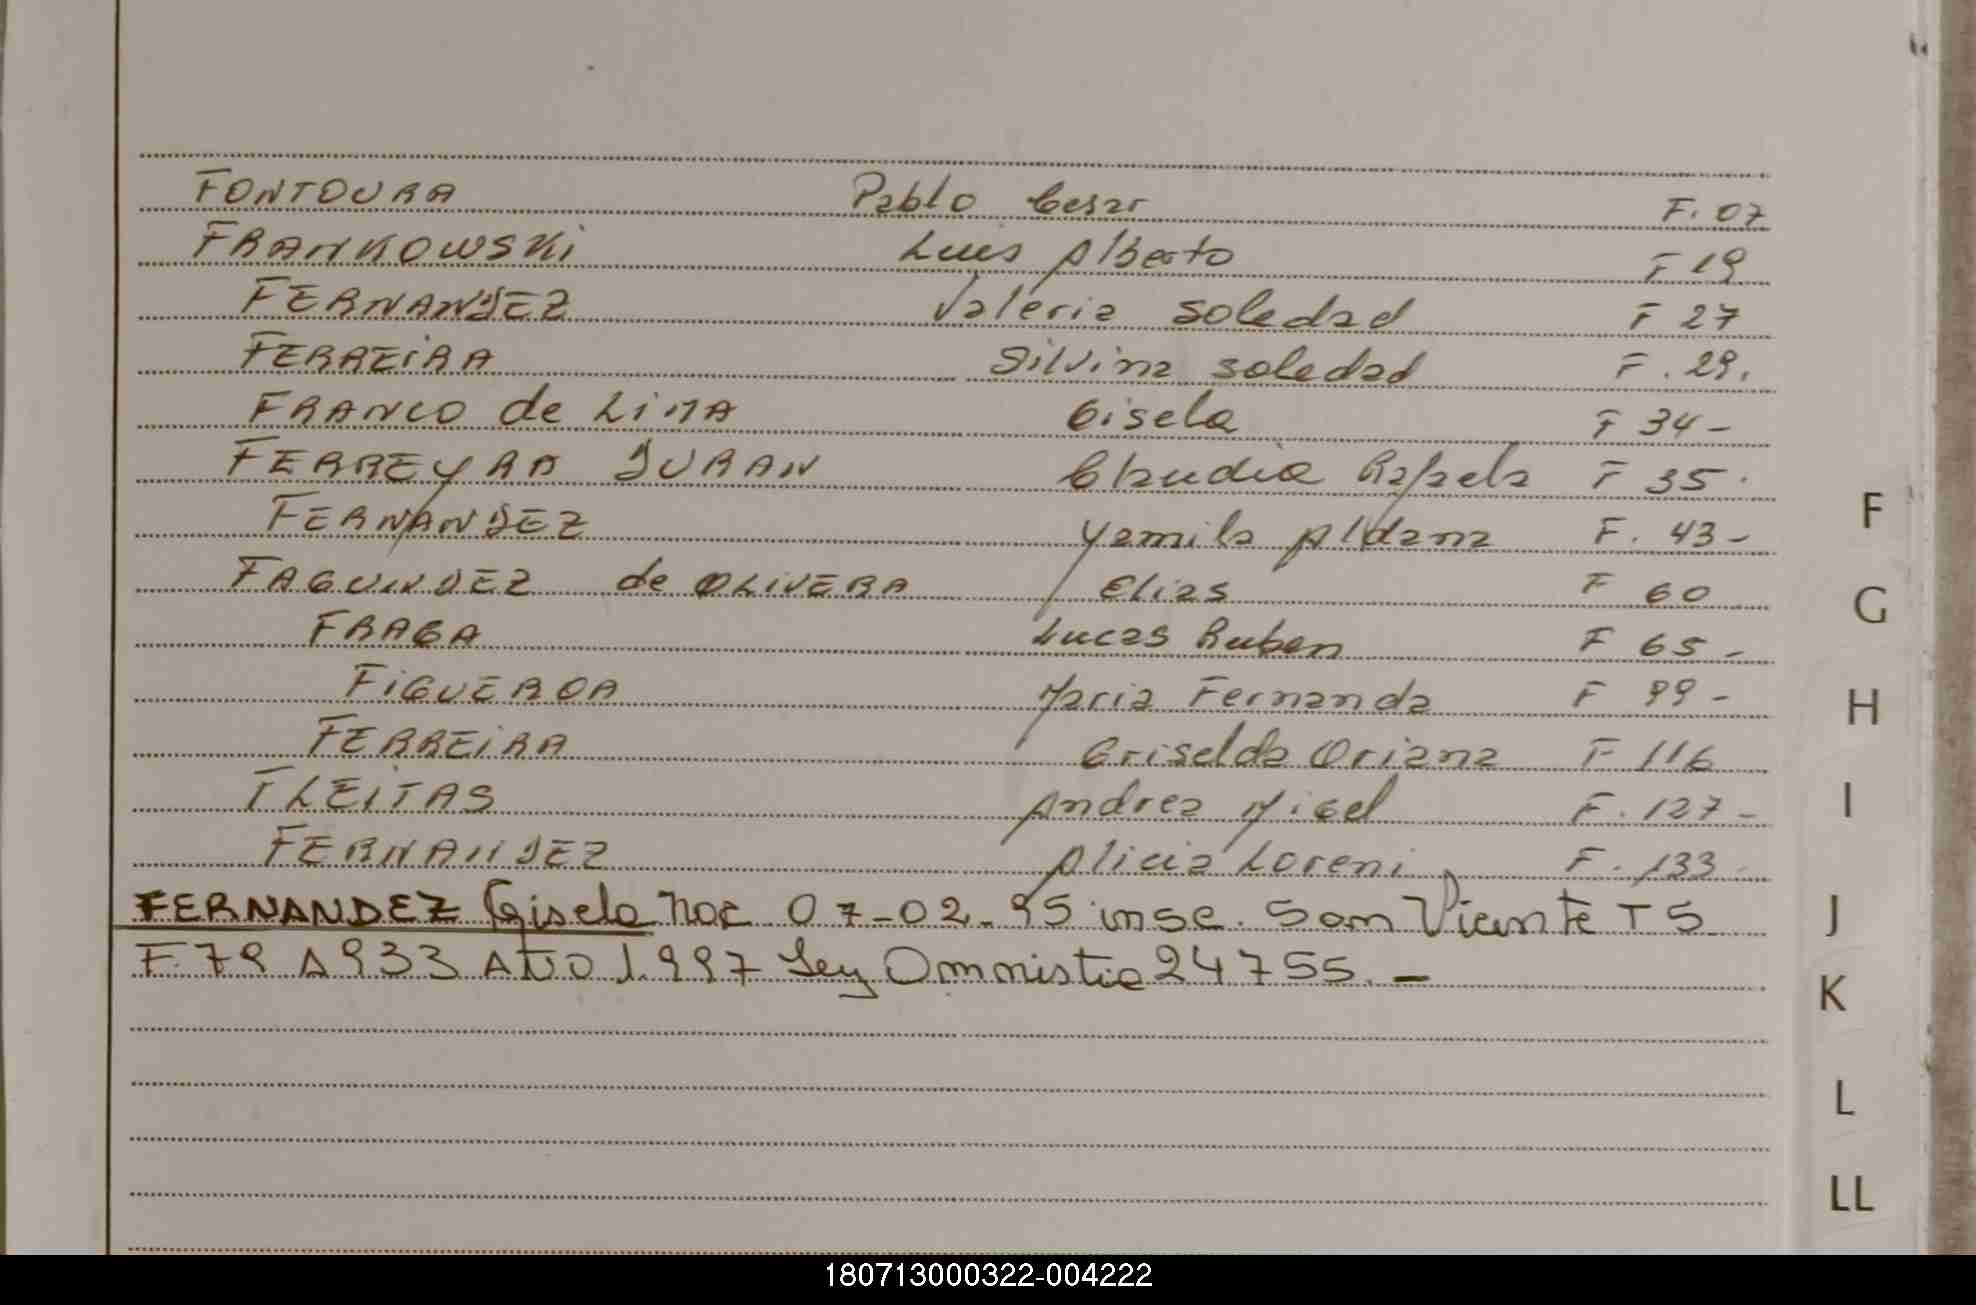 FONTOURA Pablo Cesar F. 07
FRANKOWSKi Luis Alberto F 19
FERNANDEZ Valeria Soledad F 27
FERREiRA Silvina Soledad F. 29.
FRANCO de LiMA Gisela F 34-
FERREYRA DURAN Claudia Rafaela F 35.
FERNANDEZ Yamila Aldana F. 43-
FAGUNDEZ de OLiVERA Elias F 60
FRAGA Lucas Ruben F 65-
FiGUEROA Maria Fernanda F 99-
FERREiRA Griselda Oriana F 116
FLEITAS Andrea F. 127-
FERNANDEZ Alicia Loreni F. 133-
FERNANDEZ Gisela Nac 07-02-95 insc. San Vicente T5
F.79 A933 AÑO 1.997 Ley Amnistia 24755.-
F
G
H
I
J
K
L
LL
180713000322-004222